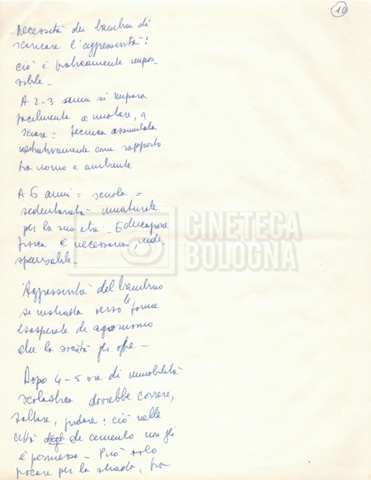 10
Necessità dei bambini di
scaricare l'aggressività!
ciò è praticamente impos-
sibile -
A 2-3 anni si impara
facilmente a nuotare, a
sciare = tecnica assimilata
come rapporto
tra uomo e ambiente
A 6 anni = scuola =
sedentarietà innaturale
per la sua età - Educazione
fisica è necessaria, indi-
spensabile -
CINETECA
BOLOGNA
Aggressività del bambino
si instrada verso le forme
esasperate di agonismo
che la società gli offre -
Dopo 4-5 ore di immobilità
scolastica dovrebbe correre,
saltare, gridare: ciò nelle
città di cemento non gli
è permesso - Può solo
giocare per la strada, fra